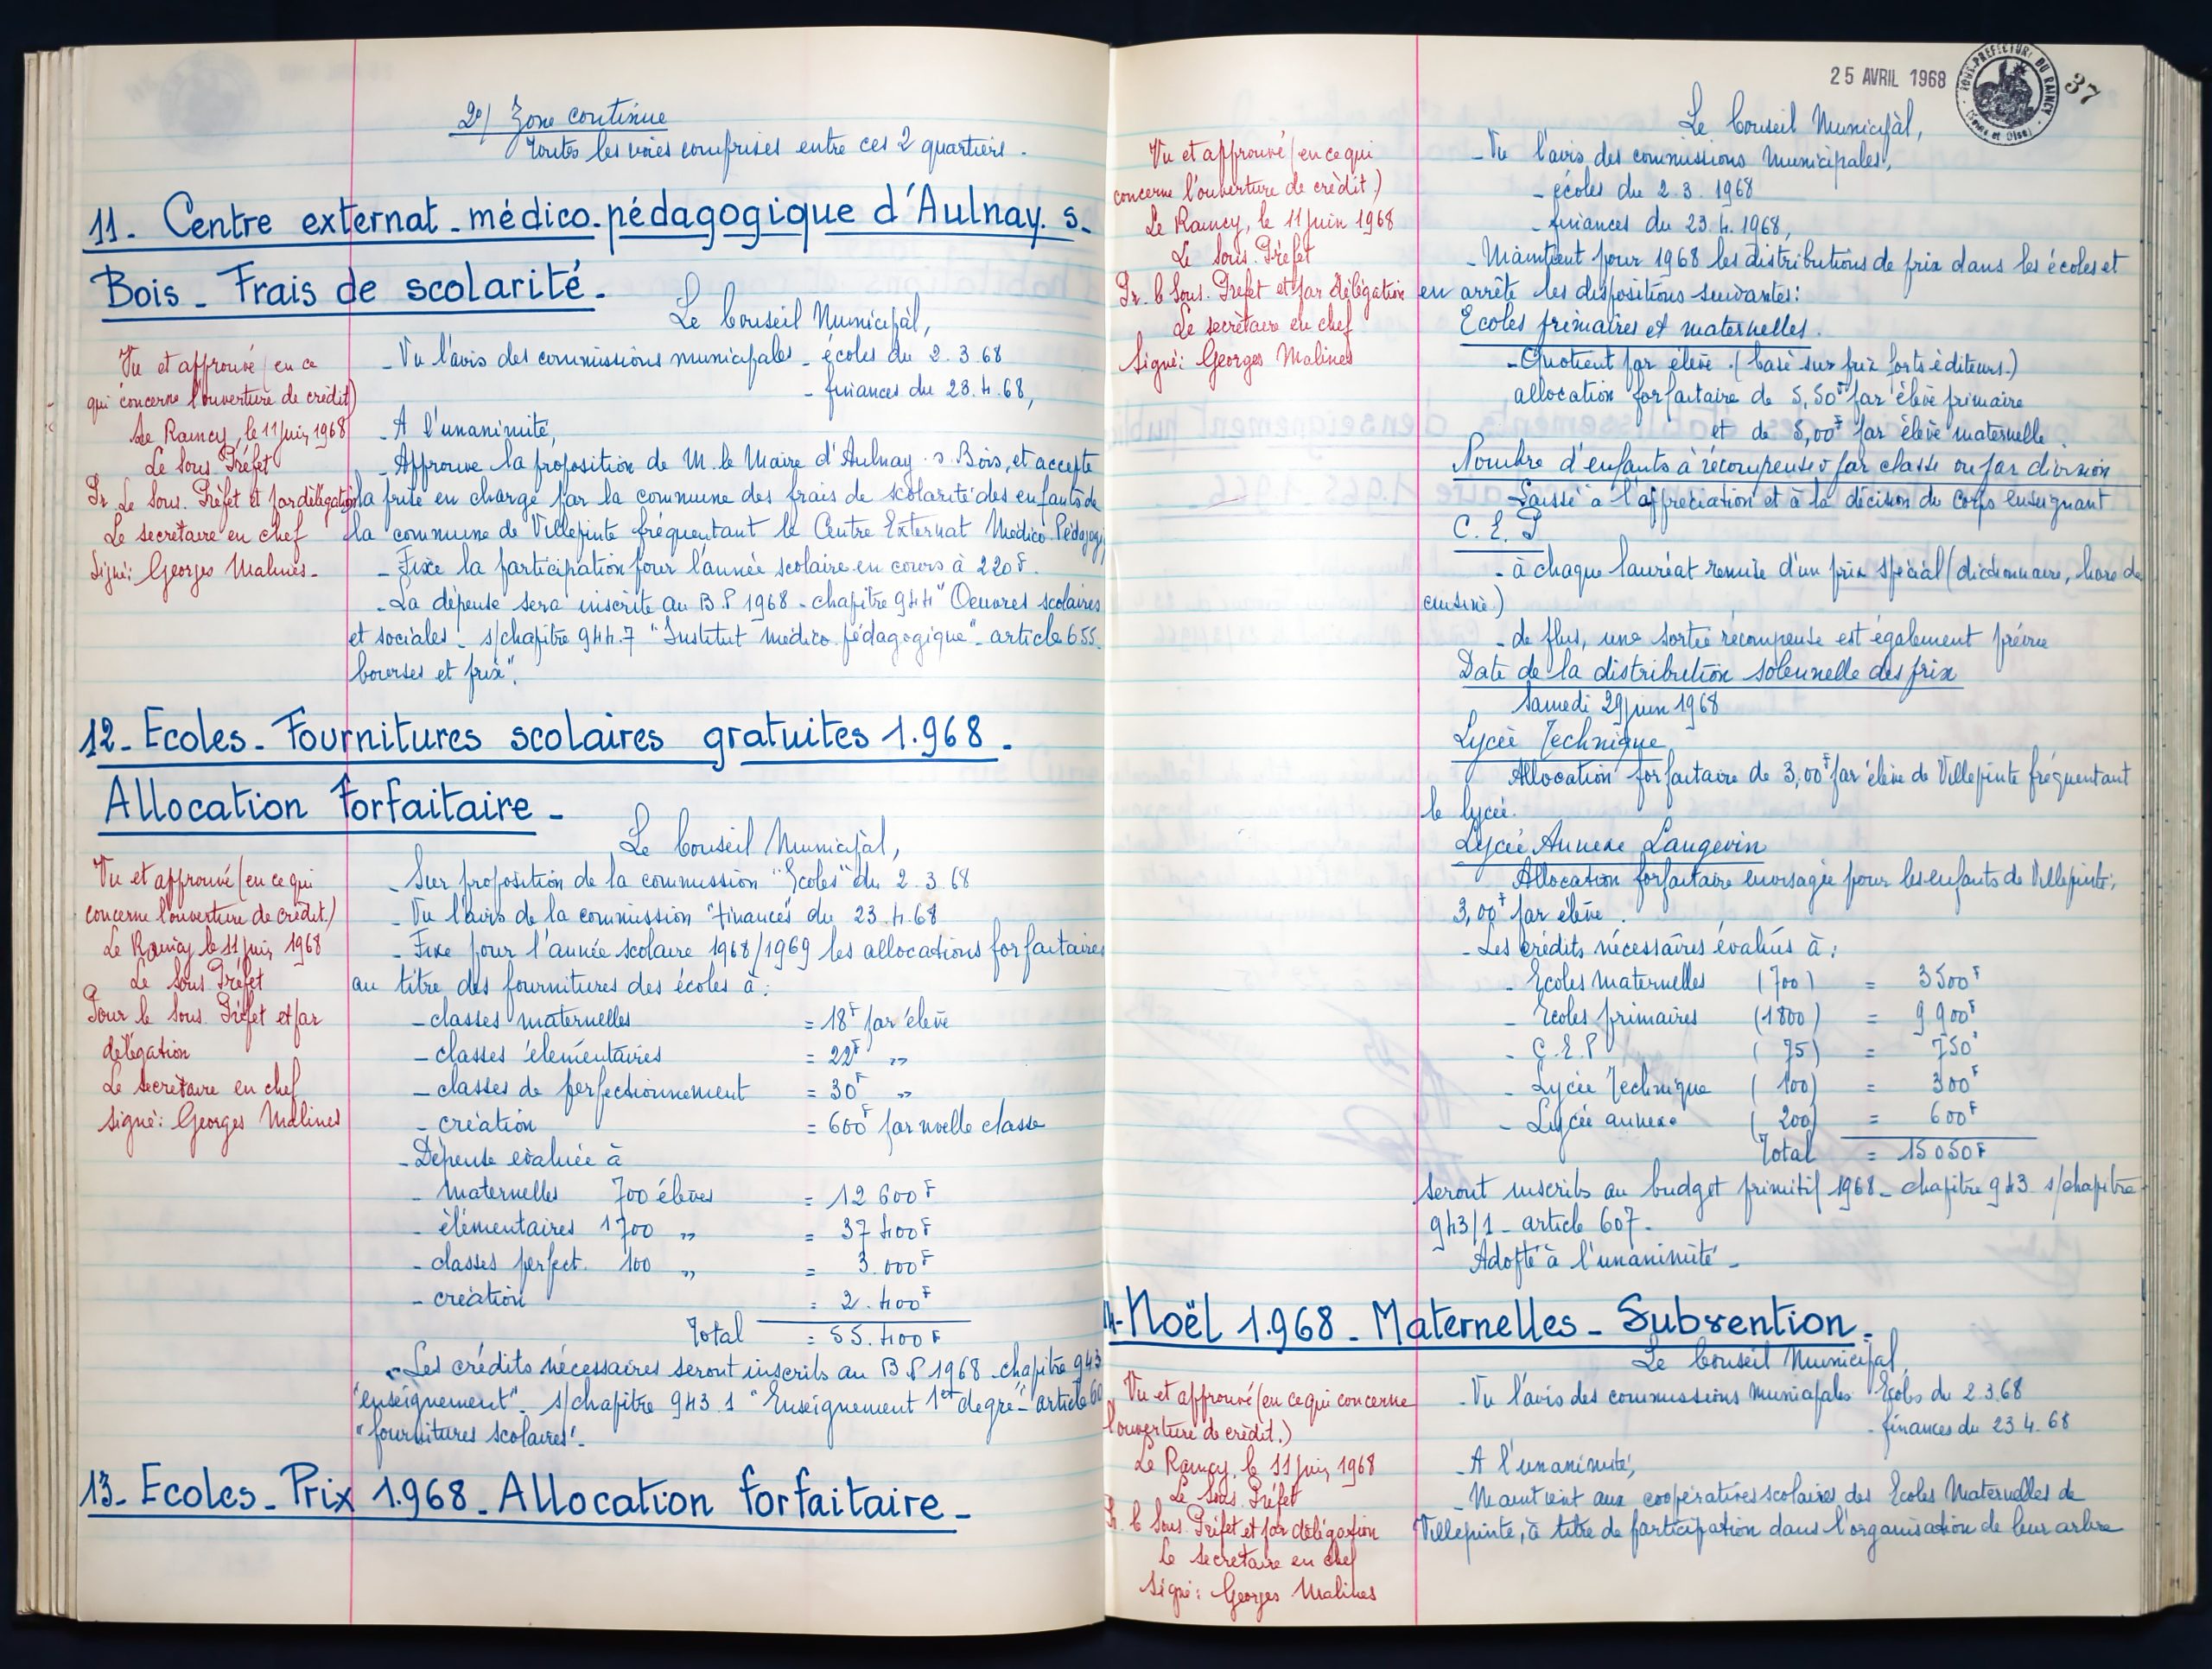 2°/ Zone continue
Toutes les voies comprises entre ces 2 quartiers.
11. Centre externat - médico-pédagogique d'Aulnay. s.
Bois - Frais de scolarité.
Le Conseil Municipal,
- Vu l'avis des commissions municipales - écoles du 2.3.68
- finances du 23.4.68,
- A l'unanimité,
- Approuve la proposition de M. le Maire d'Aulnay. s. Bois, et accepte
la prise en charge par la commune des frais de scolarité des enfants de
la commune de Villepinte fréquentant le Centre Externat Médico-Pédagogi
- Fixe la participation pour l'année scolaire en cours à 220F.
- La dépense sera inscrite au B.P 1968 - chapitre 944 "Oeuvres scolaires
et sociales - s/chapitre 944.7 "Institut médico-pédagogique" - article 655.
bourses et prix".
Vu et approuvé (en ce
qui concerne l'ouverture de crédit)
Le Raincy, le 11 juin 1968
Le Sous-Préfet
Pr. Le Sous-Préfet et par délégation
Le secrétaire en chef
Signé: Georges Malines.
12 - Ecoles - Fournitures scolaires gratuites 1.968.
Allocation forfaitaire -
Le Conseil Municipal,
- Sur proposition de la commission "Ecoles" du 2.3.68
- Vu l'avis de la commission "Finances" du 23.4.68
- Fixe pour l'année scolaire 1968/1969 les allocations forfaitaires
au titre des fournitures des écoles à :
- classes maternelles = 18F par élève
- classes élémentaires = 22F "
- classes de perfectionnement = 30F "
- création = 600F par nvelle classe
- Dépense évaluée à
- Maternelles 700 élèves = 12 600F
- élémentaires 1700 " = 37 400F
- classes perfect. 100 " = 3.000F
- création = 2.400F
Total = 55.400F
- Les crédits nécessaires seront inscrits au B.P 1968 - chapitre 943
"enseignement" - s/chapitre 943.1 "Enseignement 1er degré" - article 60
"fournitures scolaires".
Vu et approuvé (en ce qui
concerne l'ouverture de crédit.)
Le Raincy le 11 juin 1968
Le Sous-Préfet
Pour le Sous-Préfet et par
délégation
Le secrétaire en chef
Signé: Georges Malines
13 - Ecoles - Prix 1.968 - Allocation forfaitaire -
25 AVRIL 1968
SOUS-PREFECTURE DU RAINCY
(Seine et Oise)
37
Le Conseil Municipal,
- Vu l'avis des commissions municipales,
- écoles du 2.3.1968
- finances du 23.4.1968,
- Maintient pour 1968 les distributions de prix dans les écoles et
en arrête les dispositions suivantes:
Ecoles primaires et maternelles.
- Quotient par élève. (basé sur prix forts éditeurs.)
allocation forfaitaire de 5,50F par élève primaire
et de 5,00F par élève maternelle.
Nombre d'enfants à récompenser par classe ou par division
Laissé à l'appréciation et à la décision du corps enseignant
C. E. P
- à chaque lauréat remise d'un prix spécial (dictionnaire, livre de
cuisine.)
- de plus, une sortie récompense est également prévue
Date de la distribution solennelle des prix
Samedi 29 juin 1968
Lycée Technique
Allocation forfaitaire de 3,00F par élève de Villepinte fréquentant
le lycée.
Lycée Annexe Langevin
Allocation forfaitaire envisagée pour les enfants de Villepinte,
3,00F par élève.
- Les crédits nécessaires évalués à :
- Ecoles maternelles (700) = 3500F
- Ecoles primaires (1800) = 9900F
- C.E.P (75) = 750F
- Lycée Technique (100) = 300F
- Lycée annexe (200) = 600F
Total = 15050F
seront inscrits au budget primitif 1968 - chapitre 943 s/chapitre
943/1 - article 607 -
Adopté à l'unanimité -
Vu et approuvé (en ce qui
concerne l'ouverture de crédit.)
Le Raincy, le 11 juin 1968
Le Sous-Préfet
Pr. le Sous-Préfet et par délégation
Le secrétaire en chef
Signé: Georges Malines
14 - Noël 1.968 - Maternelles - Subvention.
Le Conseil Municipal,
- Vu l'avis des commissions municipales Ecoles du 2.3.68
- finances du 23.4.68
- A l'unanimité,
- Maintient aux coopératives scolaires des Ecoles Maternelles de
Villepinte, à titre de participation dans l'organisation de leur arbre
Vu et approuvé (en ce qui concerne
l'ouverture de crédit.)
Le Raincy, le 11 juin 1968
Le Sous-Préfet
Pr. le Sous-Préfet et par délégation
Le secrétaire en chef
Signé: Georges Malines